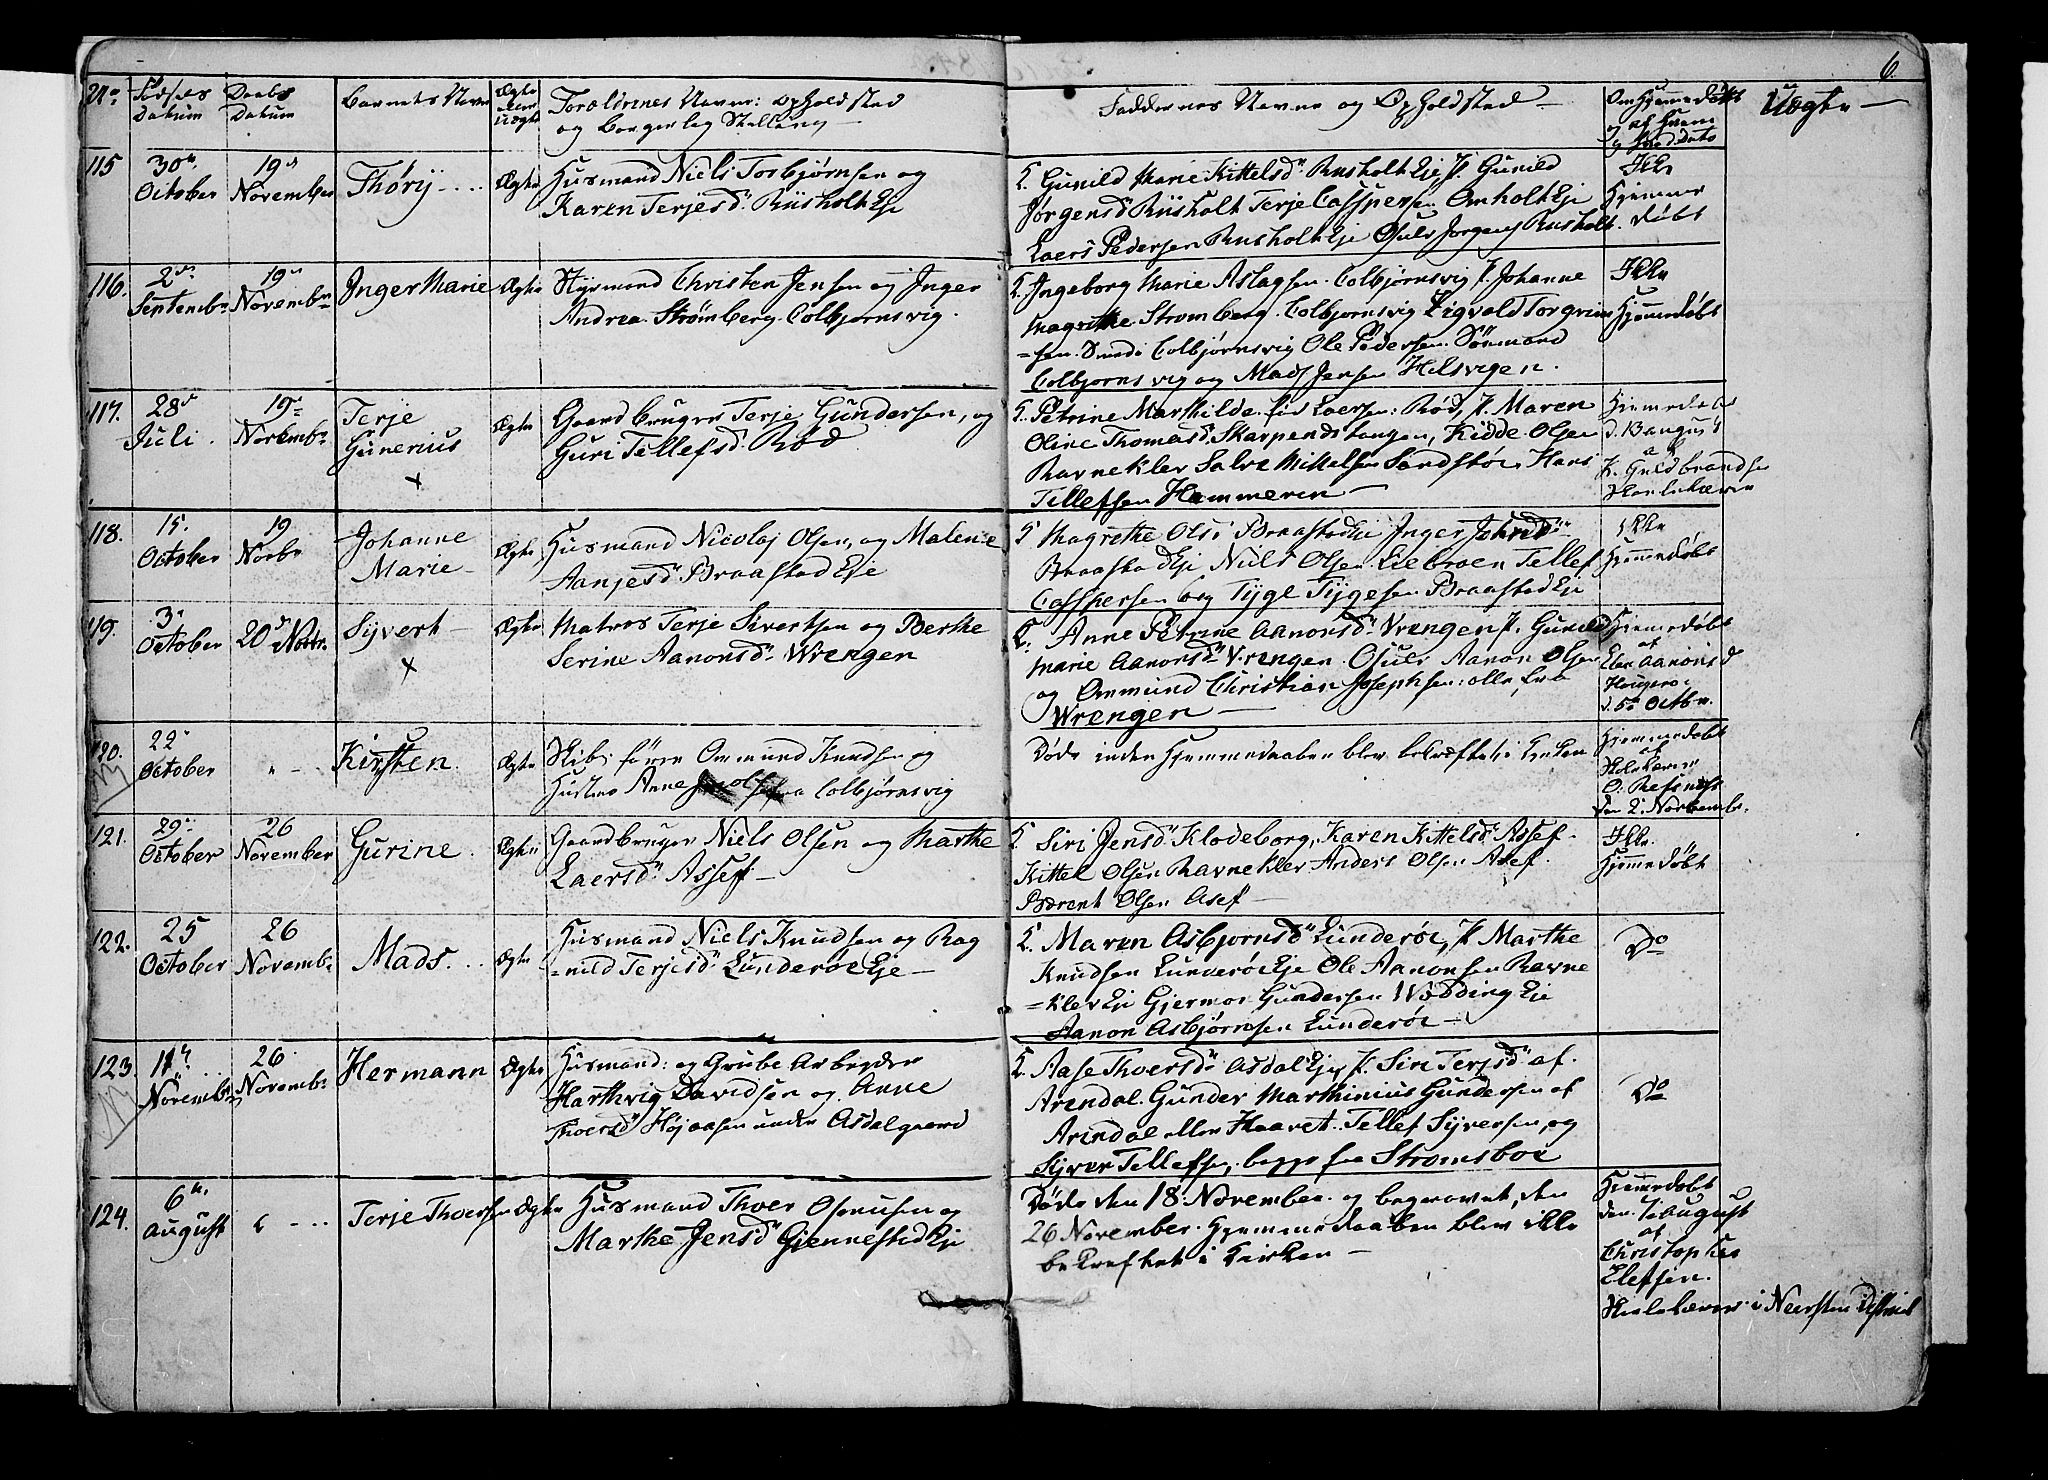 6.
No. Fødsels Datum Daabs Datum Barnets Navn Ægte eller Uægte Forældrenes Navne: Opholdsted
og borgerlig Stilling
Faddernes Navne og Opholdsted
Om Hjemmedøbt
af Hvem
og Hvad Dato
Uægte
115 30te October 19de November Thorij Ægte
Husmand Niels Torbjørnsen og
Karen Terjesd. Riisholt Eje
F. Gunild Marie Kittelsd. Rusholt Eje, J. Gunild
Jørgensd. Riisholt Terje Casspersen Omholt Eje
Laers Pedersen Rusholt Eje Osuld Jorgens Rusholt.
Ikke
Hjemme
døbt
116. 2den Septembr 19de Novembr Inger Marie Ægte
Styrmand Christen Jensen og Inger
Andrea Strømberg Colbjornsvig.
F. Ingeborg Marie Aslagsen Colbjørnsvig J. Johanne
Magrethe Stromberg. Colbjornsvig Sigvald Torgrim
=sen. Smed i Colbjørnsvig Ole Pedersen Sömand
Colbjornsvig og Mads Jensen Hilsvigen.
Ikke
Hjemmedøbt
117. 28de Juli. 19de Novembr Terje
Gunerius
x
Ægte
Gaardbruger Terje Gundersen, og
Guri Tellefsd. Rød
F. Petrine Marthilde Laersen: Rød, J. Maren
Oline Thomasd. Skarpends tangen, Kidde Olsen
Ravneklev Salve Nittelsen Sandstöe, Hans
Tellefsen Hammeren
Hjemmedøbt
d. 13 august
af
K. Guldbrandsen
Skolelærer
118. 15. October 19 Novbr Johanne
Marie
Ægte
Husmand Nicolaj Olsen, og Malene
Aanjesd. Braastad Eje
F Magrethe Olsd. Braastad Eje Inger Johnsd.
Braastad Eje Niels Olsen Liebroen Tellef
Casspersen og Tyge Tygesen Braastad Eje
Ikke
Hjemmedøbt
119. 3. October 20de Novbr. Sijvert
x
Ægte
Matros Terje Sivertsen og Berthe
Serine Aanonsd. Wrengen
F. Anne Petrine Aanonsd. Vrengen J. Gunild
Marie Aanonsd. Vrengen. Osuld Aanon Olsen
og Ommund Christian Josephsen: alle fra
Wrengen
Hjemmedøbt
af
Elen Aanonsd
d. 5te Octbr.
120. 22. October " - Kirsten. Ægte
Skibsfører Ommund Knudsen og
Hustru Anne fra Colbjørnsvig
Døde inden Hjemmedaaben blev bekræftet i Kirken
Hjemmedøbt
af
Skolelærer
O. Refsnes
den 2. Novembr.
121. 29. October 26 November Gurine. Ægte
Gaardbruger Niels Olsen og Marthe
Laersd. Assef
F. Siri Jensd. Klodeborg, Karen Kittelsd. Assef.
Kittel Olsen Ravneklev Anders Olsen Asef.
Barent Olsen Asef
Ikke.
Hjemmedøbt
122. 25 October 26 Novembr Mads. Ægte
Husmand Niels Knudsen og Rag
=nild Terjesd. Lunderöe Eje
F. Maren Asbjornsd. Lunderöe, J. Marthe
Knudsen Lunderöe Eje Ole Aanonsen Ravne
=klev Eje Gjermon Gundersen Wedding Eje
Aanon Asbjørnsen Lunderöe
Do
123. 11te Novembr 26 Novembr Hermann Ægte
Husmand: og Grube Arbeyder
Harthvig Davidsen og Anne
Thorsd. Højaasen under Asdalgaard
F. Aase Thorsd. Asdal Eje J. Siri Terjesd. af.
Arendal. Gunder Marthinius Gundersen af
Arindal eller Haavet. Tellef Syversen, og
Syver Tellefsen, begge fra Stromsboe
Do
124. 6te August " - Terje Thorsen Ægte
Husmand Thoer Osmusen og
Marthe Jensd. Gjennestad Eje
Døde den 18. November og begravet, den
26 November. Hjemmedaaben blev ikke
bekræftet i Kirken
Hjemmedøbt
den 7. August
af
Christopher
Elefsen.
Skolelærer i Neersten District